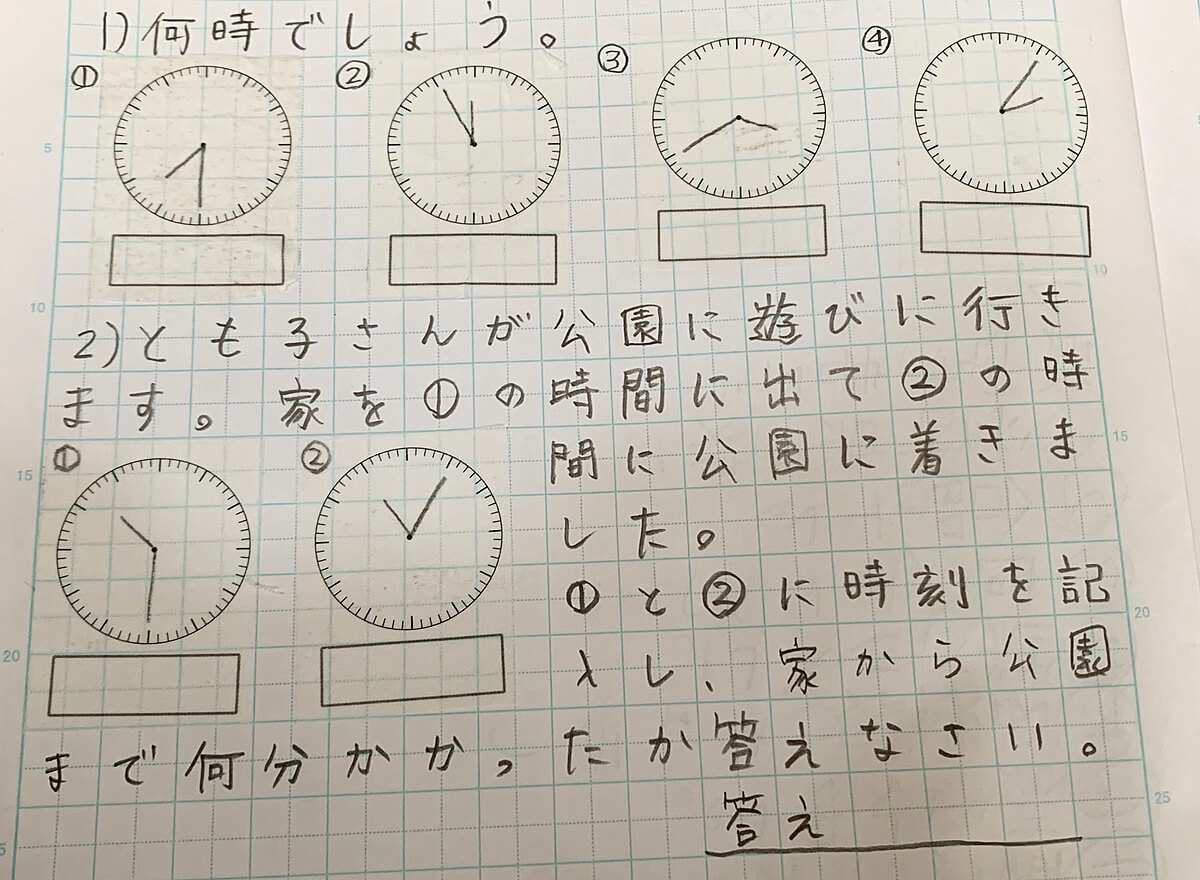 1) 何時でしょう。
① ② ③ ④
5
10
10
2) とも子さんが公園に遊びに行き
ます。 家を①の時間に出て②の時
① ② 間に公園に着きま
15
15
した。
①と②に時刻を記
20
入し、家から公園
20
まで何分かかったか答えなさい。
答え
25